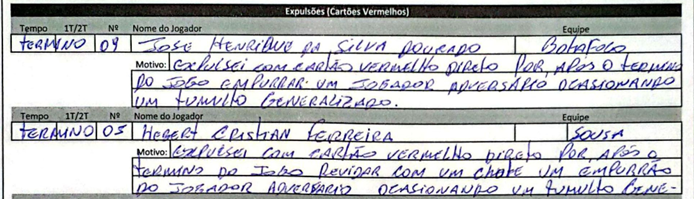 Expulsões (Cartões Vermelhos)
Tempo 1T/2T Nº Nome do Jogador Equipe
TERMINO 09 JOSE HENRIQUE DA SILVA DOURADO BOTAFOGO
Motivo: EXPULSEI COM CARTÃO VERMELHO DIRETO POR, APÓS O TERMINO
DO JOGO EMPURRAR UM JOGADOR ADVERSÁRIO OCASIONANDO
UM TUMULTO GENERALIZADO.
Tempo 1T/2T Nº Nome do Jogador Equipe
TERMINO 05 HEBERT CRISTIAN FERREIRA SOUSA
Motivo: EXPULSEI COM CARTÃO VERMELHO DIRETO POR, APÓS O
TERMINO DO JOGO REVIDAR COM UM CHUTE UM EMPURRÃO
DO JOGADOR ADVERSARIO OCASIONANDO UM TUMULTO GENE-